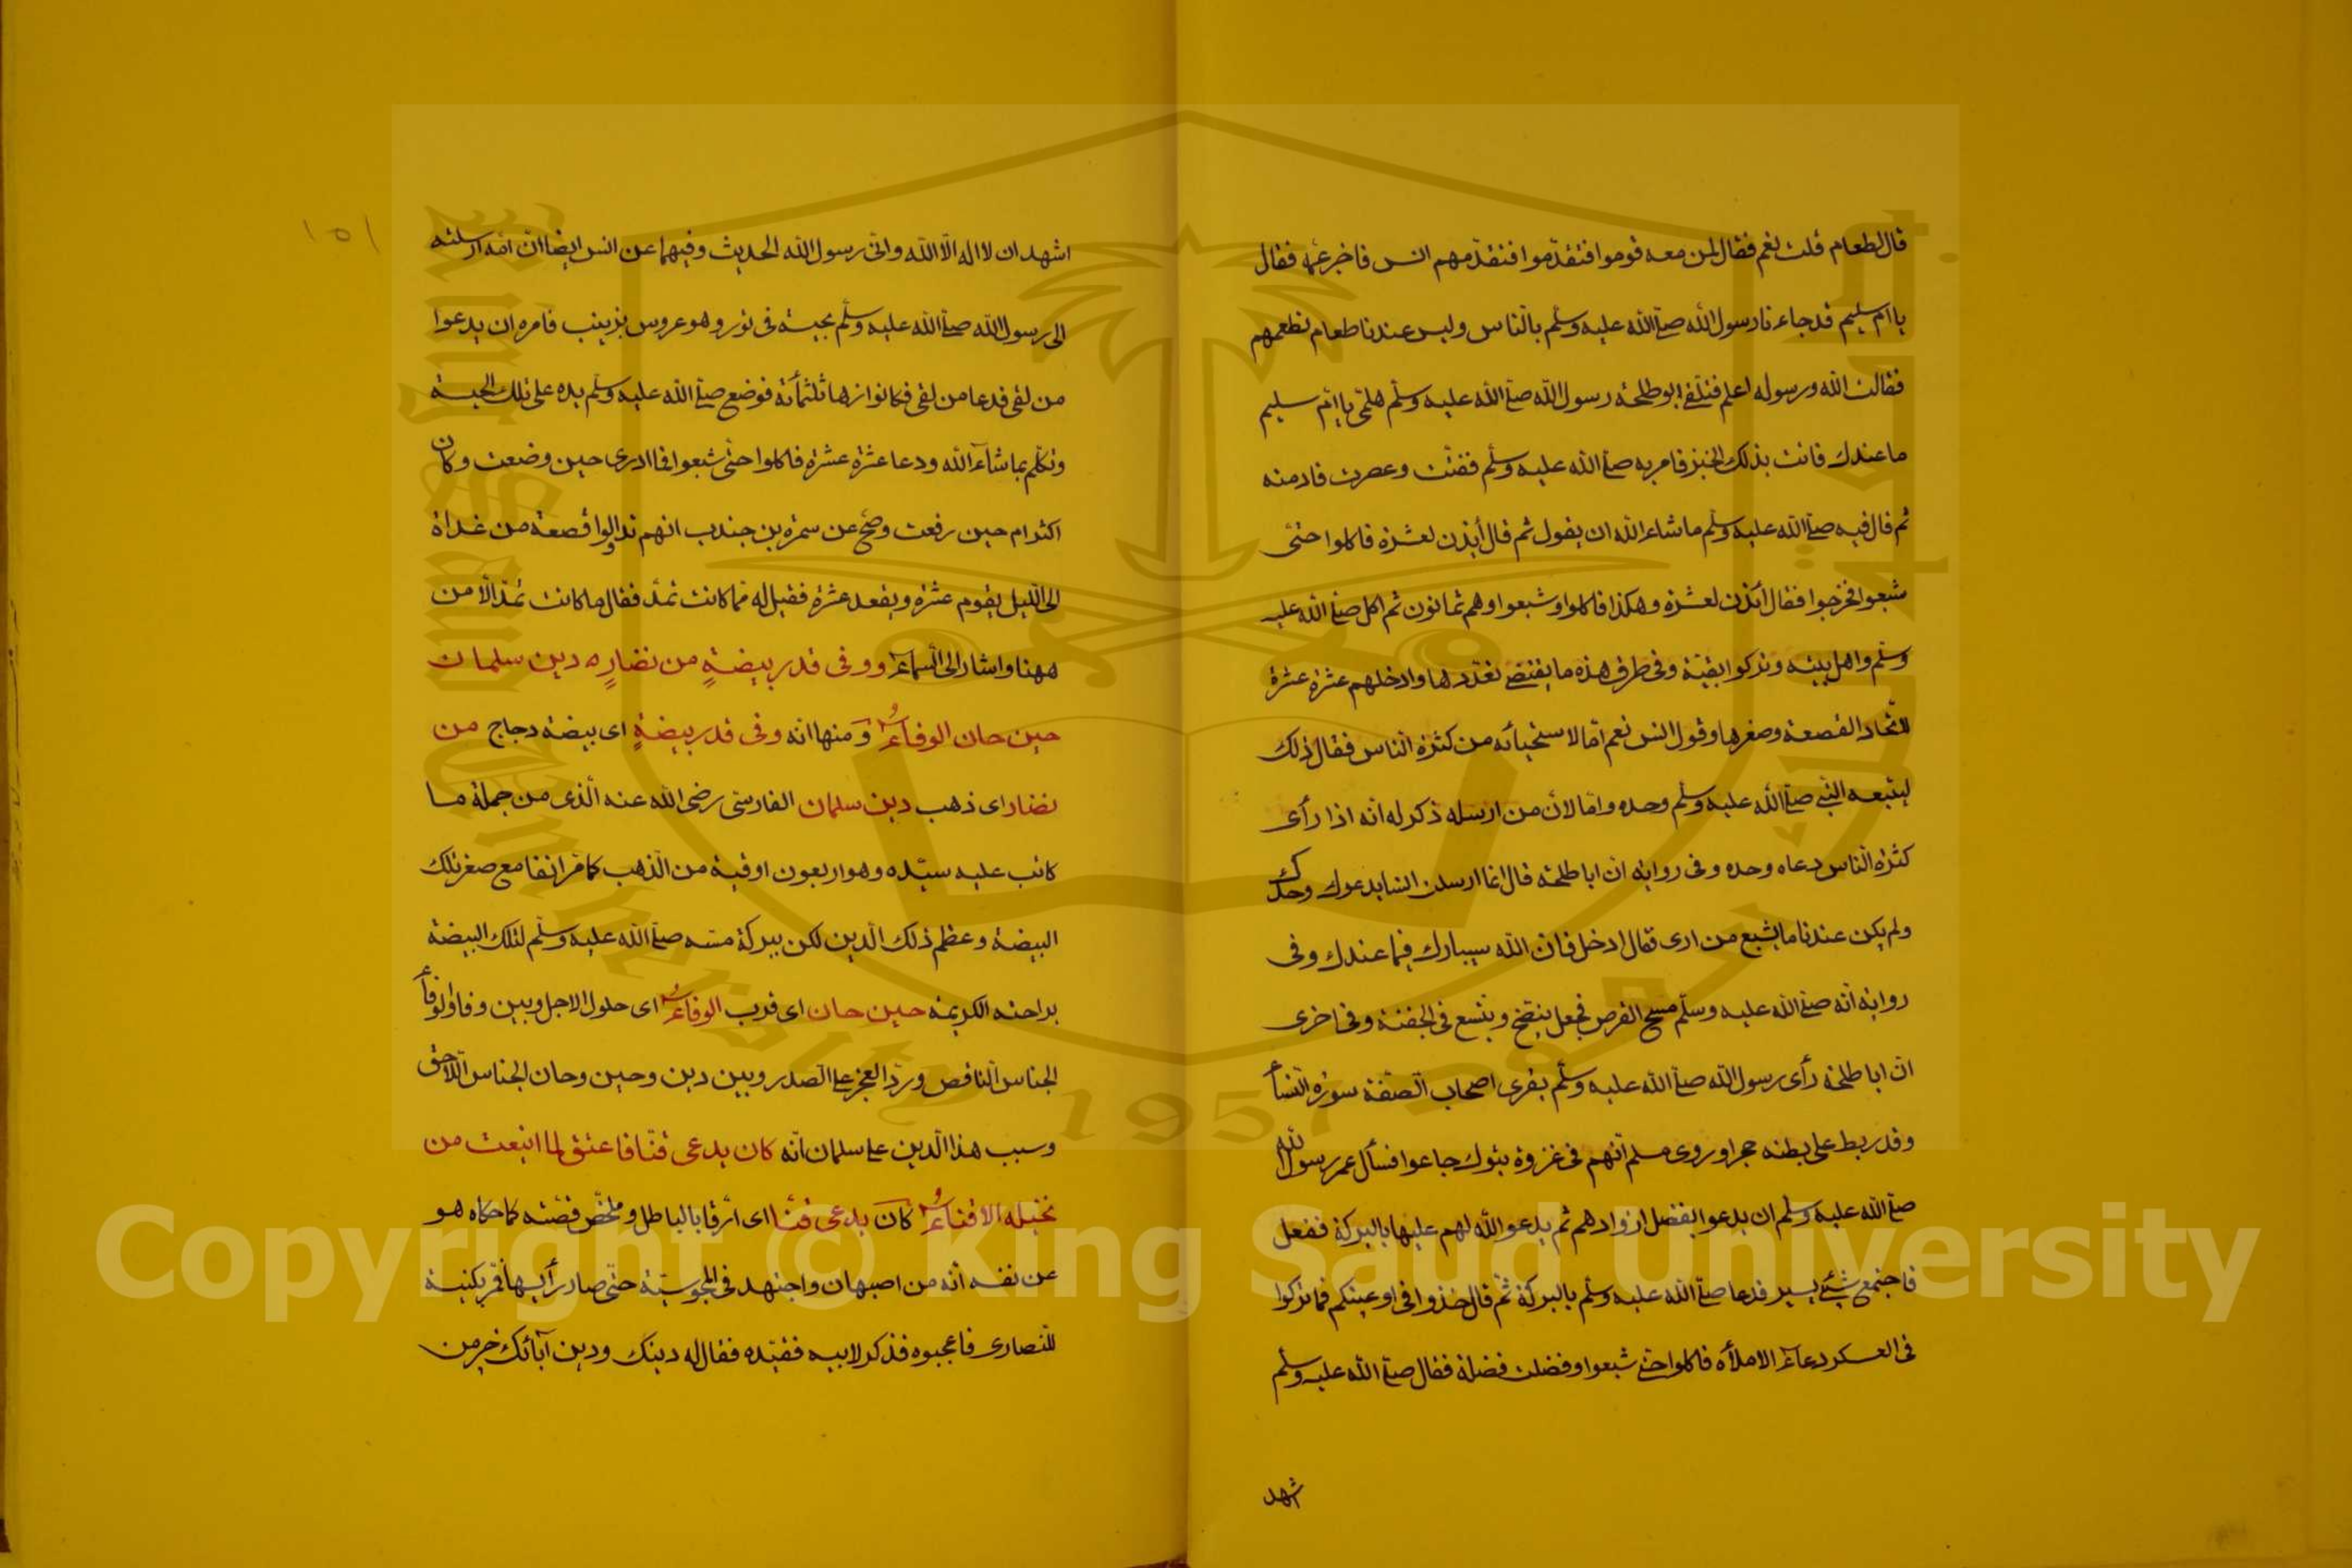 قال لطعام قلت نعم فقال لمن معه قوموا فتقدّموا فتقدّمهم انس فاخبر عمّه فقال
يا ام سليم قد جاءنا رسول الله صلى الله عليه وسلّم بالناس وليس عندنا طعام نطعمهم
فقالت الله ورسوله اعلم فتلقى ابو طلحة رسول الله صلى الله عليه وسلّم هلمّى يا امّ سليم
ما عندك فاتت بذلك الخبز فامر به صلى الله عليه وسلّم ففتّت وعصرت فادمته
ثم قال فيه صلى الله عليه وسلّم ما شاء الله ان يقول ثم قال أيذن لعشرة فاكلوا حتّى
شبعوا فخرجوا فقال أيذن لعشرة وهكذا فاكلوا وشبعوا وهم ثمانون ثم اكل صلى الله عليه
وسلّم واهل بيته وتركوا بقيّة وفى طرق هذه ما يقتضى تعددها وادخلهم عشرة عشرة
لاتّحاد القصعة وصغرها وقول انس نعم امّا لاستحيائه من كثرة الناس فقال ذلك
ليتبعه النبى صلى الله عليه وسلّم وحده وامّا لانّ من ارسله ذكر له انه اذا رأى
كثرة الناس دعاه وحده وفى رواية انّ ابا طلحة قال انما ارسلت انسا يدعوك وحدك
ولم يكن عندنا ما يشبع من ارى فقال ادخل فان الله سيبارك فيما عندك وفى
رواية انّه صلى الله عليه وسلّم مسح القرص فجعل ينتفخ ويتّسع فى الجفنة وفى اخرى
انّ ابا طلحة رأى رسول الله صلى الله عليه وسلّم يقرى اصحاب الصّفّة سورة النّساء
وقد ربط على بطنه حجرا وروى مسلم انّهم فى غزوة تبوك جاعوا فسأل عمر رسول الله
صلى الله عليه وسلم ان يدعوا بفضل ازوادهم ثم يدعو الله لهم عليها بالبركة ففعل
فاجتمع شئ يسير فدعا صلى الله عليه وسلّم بالبركة ثم قال خذوا فى اوعيتكم فما تركوا
فى العسكر دعاء الا ملأه فاكلوا حتى شبعوا وفضلت فضلة فقال صلى الله عليه وسلم
اشهد
١٥١
اشهد ان لا اله الّا الله وانّى رسول الله الحديث وفيهما عن انس ايضا انّ امّه ارسلته
الى رسول الله صلى الله عليه وسلّم بحيسة فى تور وهو عروس بزينب فامره ان يدعوا
من لقى فدعا من لقى فكانوا زهاء ثلثمأئة فوضع صلى الله عليه وسلّم يده على تلك الحيسة
وتكلّم بما شاء الله ودعا عشرة عشرة فاكلوا حتّى شبعوا فما ادرى حين وضعت وكان
اكثر ام حين رفعت وصحّ عن سمرة بن جندب انهم تداولوا قصعة من غداة
الى الليل يقوم عشرة ويقعد عشرة فقيل له ممّا كانت تمدّ فقال ما كانت تمدّ الّا من
ههنا واشار الى السّماء ووفى قدر بيضةٍ من نضارٍ ه دين سلمان
حين حان الوفاءُ ومنها انه وفى قدر بيضةٍ اى بيضة دجاج من
نضار اى ذهب دين سلمان الفارسىّ رضى الله عنه الّذى من جملة ما
كاتب عليه سيّده وهو اربعون اوقية من الذهب كما مرّ انفا مع صغر تلك
البيضة وعظم ذلك الدين لكن ببركة مسّه صلى الله عليه وسلّم لتلك البيضة
براحته الكريمة حين حان اى قرب الوفاءُ اى حلول الاجل وبين وفا والوفاء
الجناس الناقص وردّ العجز على الصّدر وبين دين وحين وحان الجناس اللّاحق
وسبب هذا الدين على سلمان انّه كان يدعى قنّا فاعتق لما اينعت من
نخيله الاقناءُ كان يدعى قنّا اى رقّا بالباطل وملخّص قصّته كما حكاه هو
عن نفسه انّه من اصبهان واجتهد فى المجوسيّة حتّى صار رأسها فمرّ بكنيسة
للنّصارى فاعجبوه فذكر لابيه فقيّده فقال له دينك ودين آبائك خير من